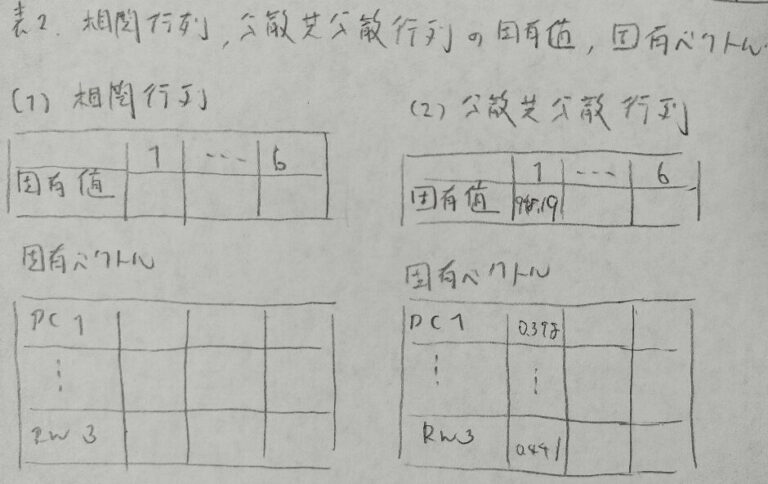 表2. 相関行列, 分散共分散行列の固有値, 固有ベクトル
(1) 相関行列
1 ... 6
固有値
固有ベクトル
PC 1
⋮
RW 3
(2) 分散共分散行列
1 ... 6
固有値
固有ベクトル
PC 1
⋮ ⋮
RW3 0.441